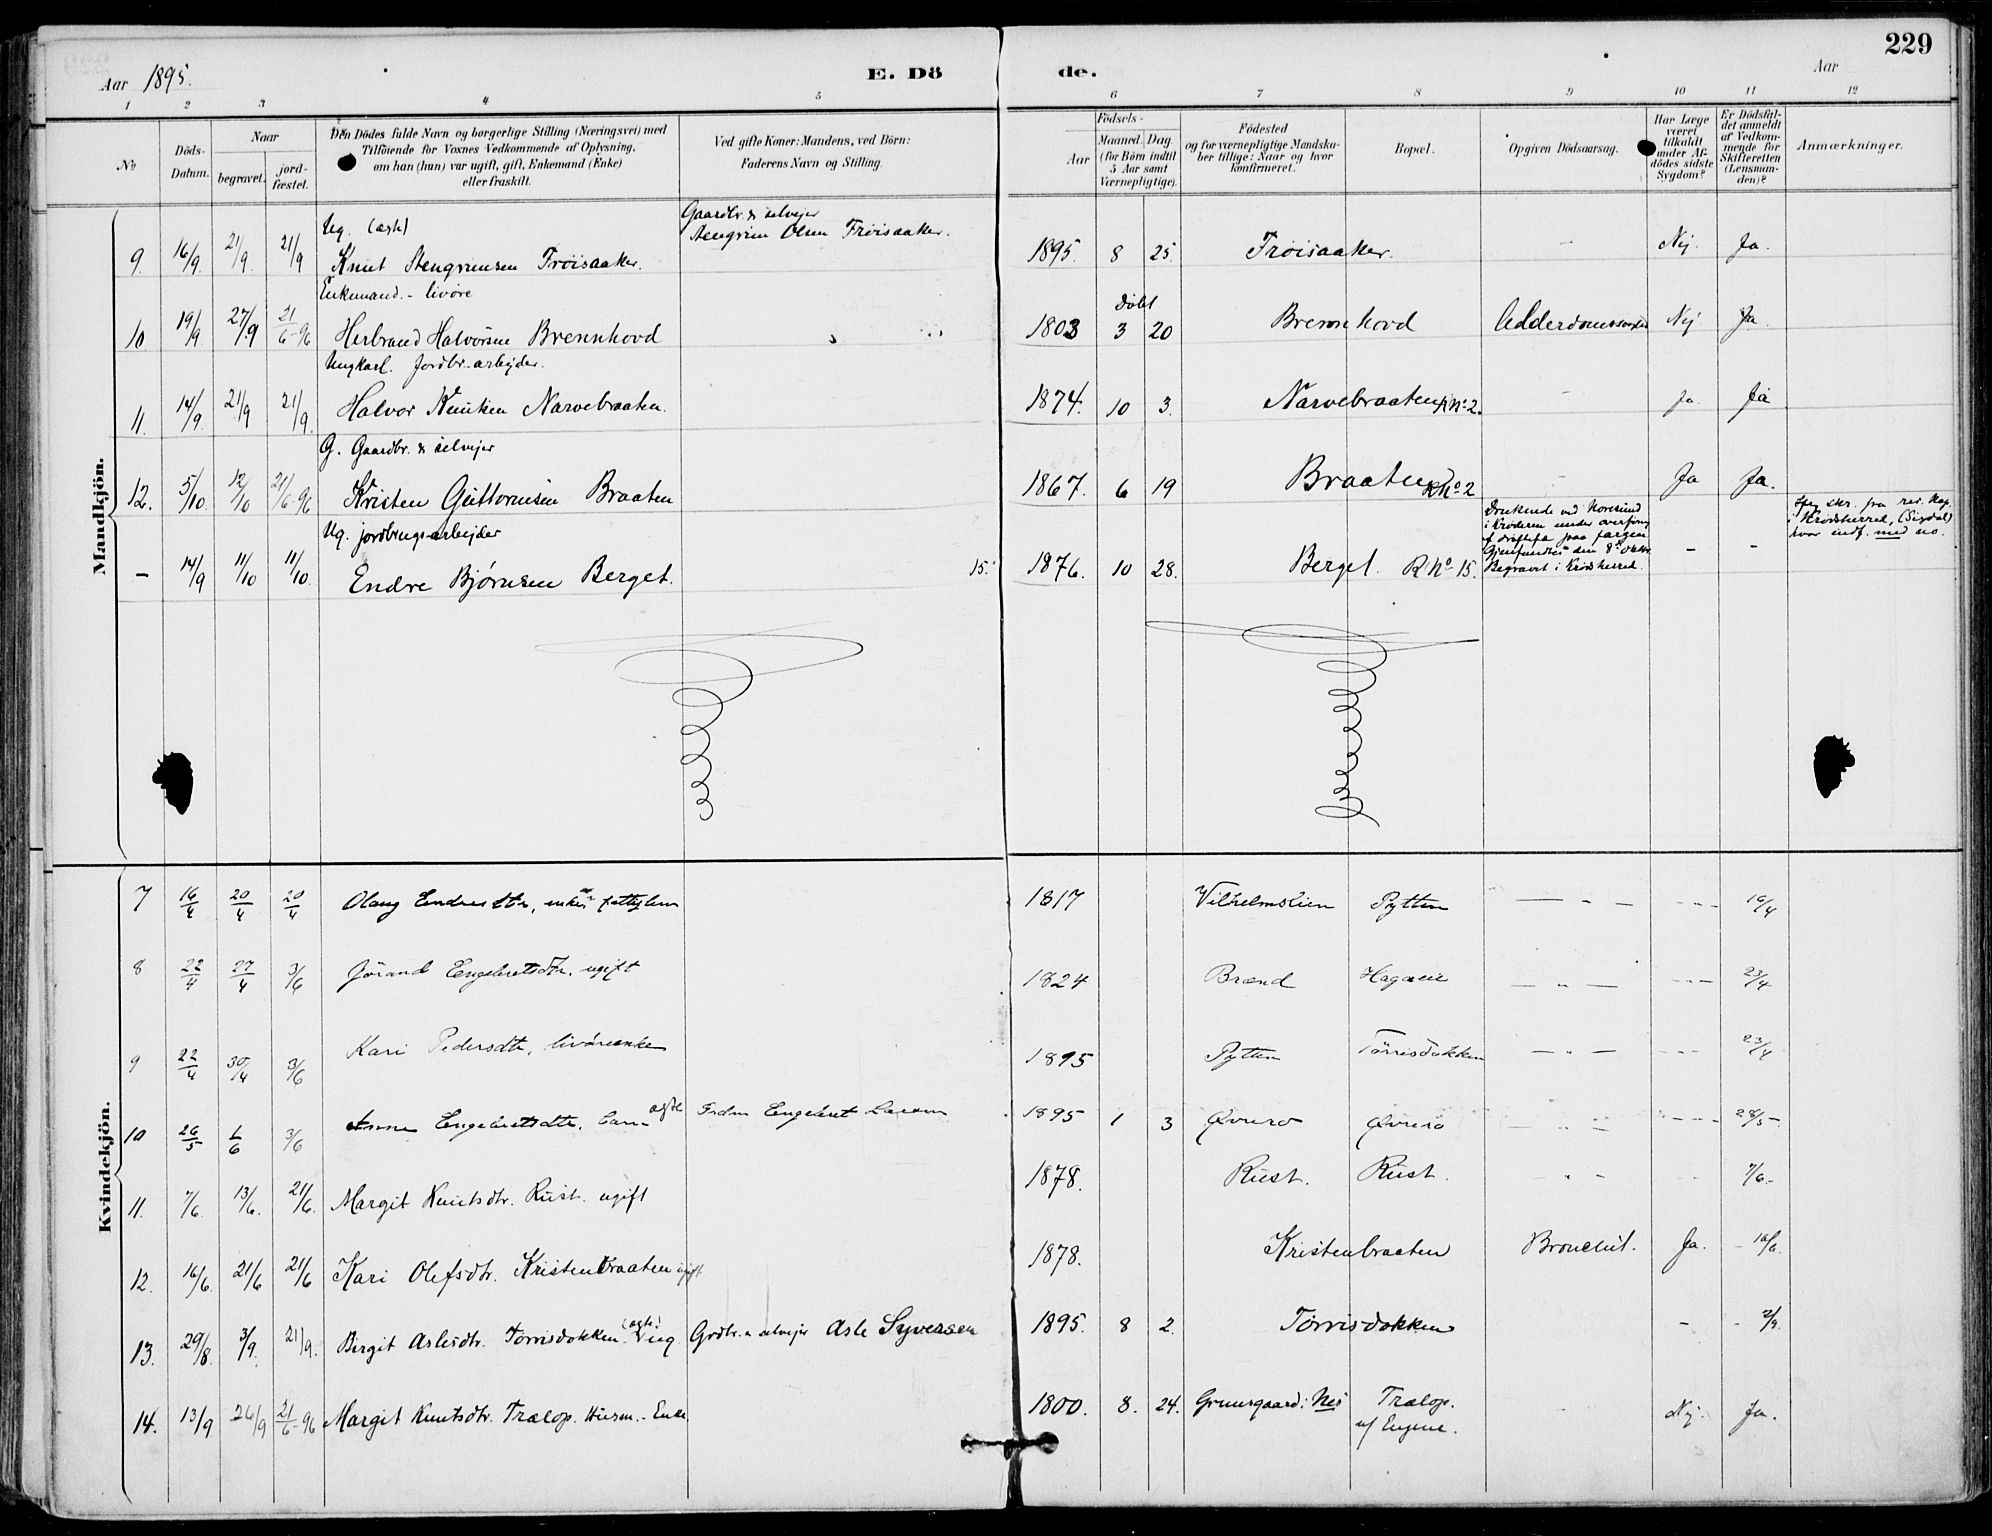 229
Aar 1895.
E. Dö de.
Aar
1 2 3 4 5 6 7 8 9 10 11 12
No.
Döds-Datum.
Naar
begravet.
jord-fæstet.
Den Dödes fulde Navn og borgerlige Stilling (Næringsvei) med
Tilföiende for Voxnes Vedkommende af Oplysning,
om han (hun) var ugift, gift, Enkemand (Enke)
eller fraskilt.
Ved gifte Koner: Mandens, ved Börn:
Faderens Navn og Stilling.
Födsels-
Aar
Maaned. Dag.
(for Börn indtil
5 Aar samt
Værnepligtige).
Födested
og for værnepligtige Mandska-
ber tillige: Naar og hvor
konfirmeret.
Bopæl.
Opgiven Dödsaarsag.
Har Læge
været
tilkaldt
under Af-
dödes sidste
Sygdom?
Er Dödsfal-
det anmeldt
af Vedkom-
mende for
Skifteretten
(Lensman-
den)?
Anmærkninger.
Mandkjön.
Ug. (ægte) Gaardbr. & selvejer
9. 16/9 21/9 21/9 Knut Stengrimsen Trøisaaker. Stengrim Olsen Trøisaaker. 1895. 8 25. Trøisaaker. - Nej. Ja.
Enkemand. - livøre Døbt
10 19/9 27/9 21/6 96 Herbrand Halvorsen Brennhovd 1803 3 20 Brennhovd Alderdomssvaghed Nej Ja
Ungkarl. Jordbr. arbejder.
11. 14/9 21/9 21/9. Halvor Knutsen Narvebraaten. 1874. 10 3. Narvebraaten R No 2. - Ja. Ja
G. Gaardbr. & selvejer
12. 5/10. 12/10 21/6 96 Kristen Guttormsen Braaten 1867. 6 19 Braaten R No 2 - Ja Ja.
Ug. jordbrugsarbejder
- 14/9 11/10 11/10. Endre Bjørnsen Berget. 15. 1876. 10 28. Berget. R No 15. - -
Druknede ved Noresund
i Krøderen under overføring
af driftefæ paa færgen
Gjenfundtes den 8de Oktbr.
Begravet i Krødsherred.
skr. fra res. kap.
i Krødsherred, (Sigdal)
hvor indf. med no.
Kvindekjön.
7 16/4 20/4 20/4 Olaug Endresdtr, enke, fattiglem 1817 Vilhelmslien Pytten - " - - - - 16/4
8 22/4 27/4 3/6 Jørand Engebretsdtr. ugift 1824 Brænd Hagaeie - " - - - - 23/4
9 22/4 30/4 3/6 Kari Pedersdtr, livøreenke 1895 Pytten Tørrisdokken - " - - - - 23/4
10 26/5 1/6 3/6 Anne Engebretsdtr. barn ægte Fader Engebret Larsen 1895 1 3 Øvrero Øvrero - " - - - - 28/5
11. 7/6. 13/6. 21/6. Margit Knutsdtr. Rust. ugift 1878. Rust. Rust. - " - - - 7/6.-
12. 16/6. 21/6 21/6 Kari Olefsdtr. Kristenbraaten ugift 1878. Kristenbraaten Bronchit. Ja. - 16/6.
13. 29/8. 3/9. 21/9. Birgit Aslesdtr. Tørrisdokken (ægte) Pig Grdbr. & selvejer Asle Syversen 1895. 8 2. Tørrisdokken - - 2/9.
14. 13/9 26/9 21/6 96 Margit Knutsdtr. Trælop. Husm. - Enke. 1800. 8. 24. Grimsgaard: Nes Trælop. - Nej. Ja.
u/ Engene.